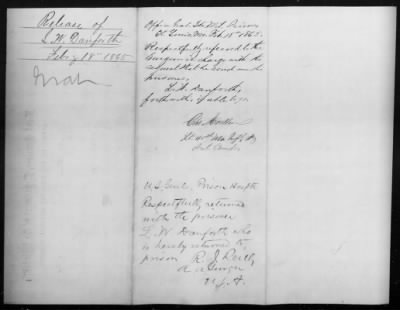 Release of
L. W. Danforth
Feby 18" 1865
Office
St. Louis Mo. Feb 18" 1865.
Respectfully referred to the
Surgeon in charge with the
request that he send in the
prisoner,
L. W. Danforth,
forthwith, if able to go.
U.S. Genl. Prison Hospt
Respectfully returned
with the prisoner
L. W. Danforth who
is hereby returned to
prison R. J.
A. A. Surgn
U.S.A.